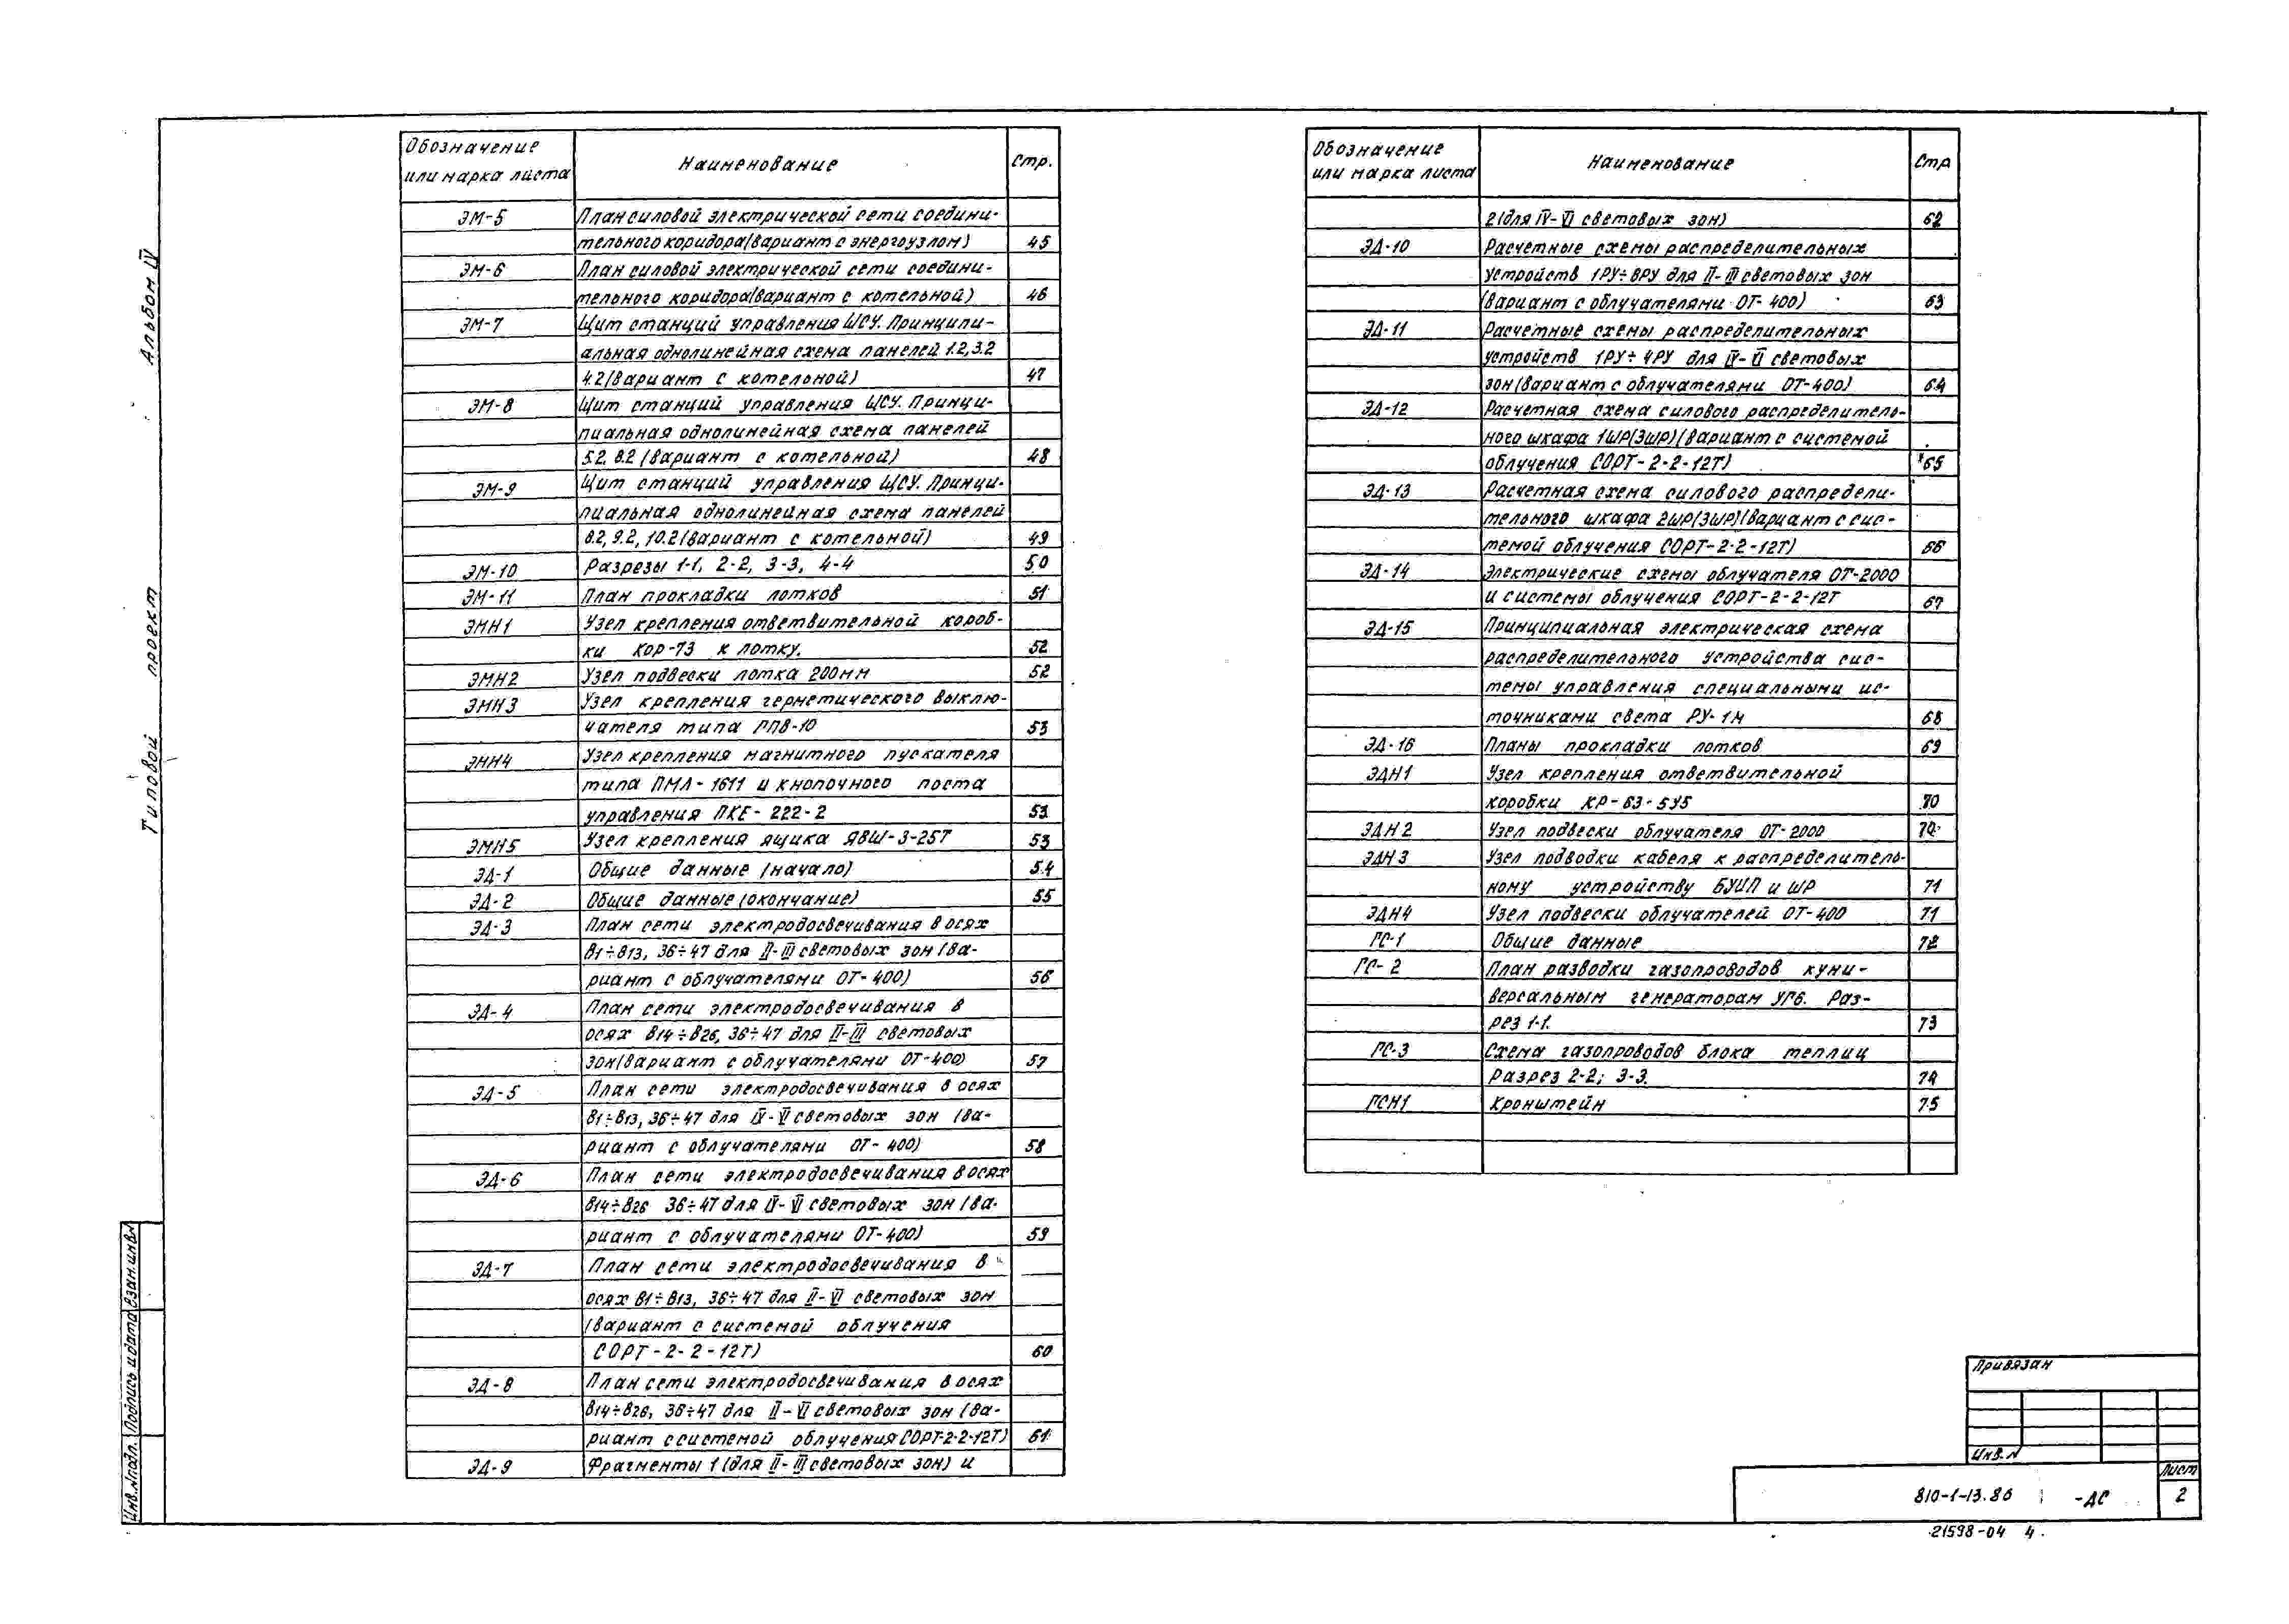 Альбом IV
Типовой проект
Обозначение или марка листа | Наименование | Стр.
ЭМ-5 | План силовой электрической сети соедини-
тельного коридора (вариант с энергоузлом) | 45
ЭМ-6 | План силовой электрической сети соедини-
тельного коридора (вариант с котельной) | 46
ЭМ-7 | Щит станций управления ЩСУ. Принципи-
альная однолинейная схема панелей 1.2, 3.2
4.2 (вариант с котельной) | 47
ЭМ-8 | Щит станций управления ЩСУ. Принци-
пиальная однолинейная схема панелей
5.2, 6.2 (вариант с котельной) | 48
ЭМ-9 | Щит станций управления ЩСУ. Принци-
пиальная однолинейная схема панелей
8.2, 9.2, 10.2 (вариант с котельной) | 49
ЭМ-10 | Разрезы 1-1, 2-2, 3-3, 4-4 | 50
ЭМ-11 | План прокладки лотков | 51
ЭМН1 | Узел крепления ответвительной короб-
ки КОР-73 к лотку. | 52
ЭМН2 | Узел подвески лотка 200мм | 52
ЭМН3 | Узел крепления герметического выклю-
чателя типа РПВ-10 | 53
ЭМН4 | Узел крепления магнитного пускателя
типа ПМЛ-1611 и кнопочного поста
управления ПКЕ-222-2 | 53
ЭМН5 | Узел крепления ящика ЯВШ-3-25Т | 53
ЭД-1 | Общие данные (начало) | 54
ЭД-2 | Общие данные (окончание) | 55
ЭД-3 | План сети электродосвечивания в осях
В1÷В13, 36÷47 для II-III световых зон (ва-
риант с облучателями ОТ-400) | 56
ЭД-4 | План сети электродосвечивания в
осях В14÷В26, 36÷47 для II-III световых
зон (вариант с облучателями ОТ-400) | 57
ЭД-5 | План сети электродосвечивания в осях
В1÷В13, 36÷47 для IV-VI световых зон (ва-
риант с облучателями ОТ-400) | 58
ЭД-6 | План сети электродосвечивания в осях
В14÷В26 36÷47 для IV-VI световых зон (ва-
риант с облучателями ОТ-400) | 59
ЭД-7 | План сети электродосвечивания в
осях В1÷В13, 36÷47 для II-VI световых зон
(вариант с системой облучения
СОРТ-2-2-12Т) | 60
ЭД-8 | План сети электродосвечивания в осях
В14÷В26, 36÷47 для II-VI световых зон (ва-
риант с системой облучения СОРТ-2-2-12Т) | 61
ЭД-9 | Фрагменты 1 (для II-III световых зон) и
Обозначение или марка листа | Наименование | Стр
2 (для IV-VI световых зон) | 62
ЭД-10 | Расчетные схемы распределительных
устройств 1РУ÷8РУ для II-III световых зон
(вариант с облучателями ОТ-400) | 63
ЭД-11 | Расчетные схемы распределительных
устройств 1РУ÷4РУ для IV-VI световых
зон (вариант с облучателями ОТ-400) | 64
ЭД-12 | Расчетная схема силового распределитель-
ного шкафа 1ШР(3ШР) (вариант с системой
облучения СОРТ-2-2-12Т) | 65
ЭД-13 | Расчетная схема силового распредели-
тельного шкафа 2ШР(3ШР) (вариант с сис-
темой облучения СОРТ-2-2-12Т) | 66
ЭД-14 | Электрические схемы облучателя ОТ-2000
и системы облучения СОРТ-2-2-12Т | 67
ЭД-15 | Принципиальная электрическая схема
распределительного устройства сис-
темы управления специальными ис-
точниками света РУ-1М | 68
ЭД-16 | Планы прокладки лотков | 69
ЭДН1 | Узел крепления ответвительной
коробки КР-63-5У5 | 70
ЭДН2 | Узел подвески облучателя ОТ-2000 | 70
ЭДН3 | Узел подводки кабеля к распределитель-
ному устройству БУИП и ШР | 71
ЭДН4 | Узел подвески облучателей ОТ-400 | 71
ГС-1 | Общие данные | 72
ГС-2 | План разводки газопроводов к уни-
версальным генераторам УГ6. Раз-
рез 1-1. | 73
ГС-3 | Схема газопроводов блока теплиц
Разрез 2-2; 3-3. | 74
ГСН1 | Кронштейн | 75
Привязан
Инв. N
810-1-13.86 -ДС
Лист
2
21598-04 4
Инв.Nподл. Подпись и дата Взам.инв.N